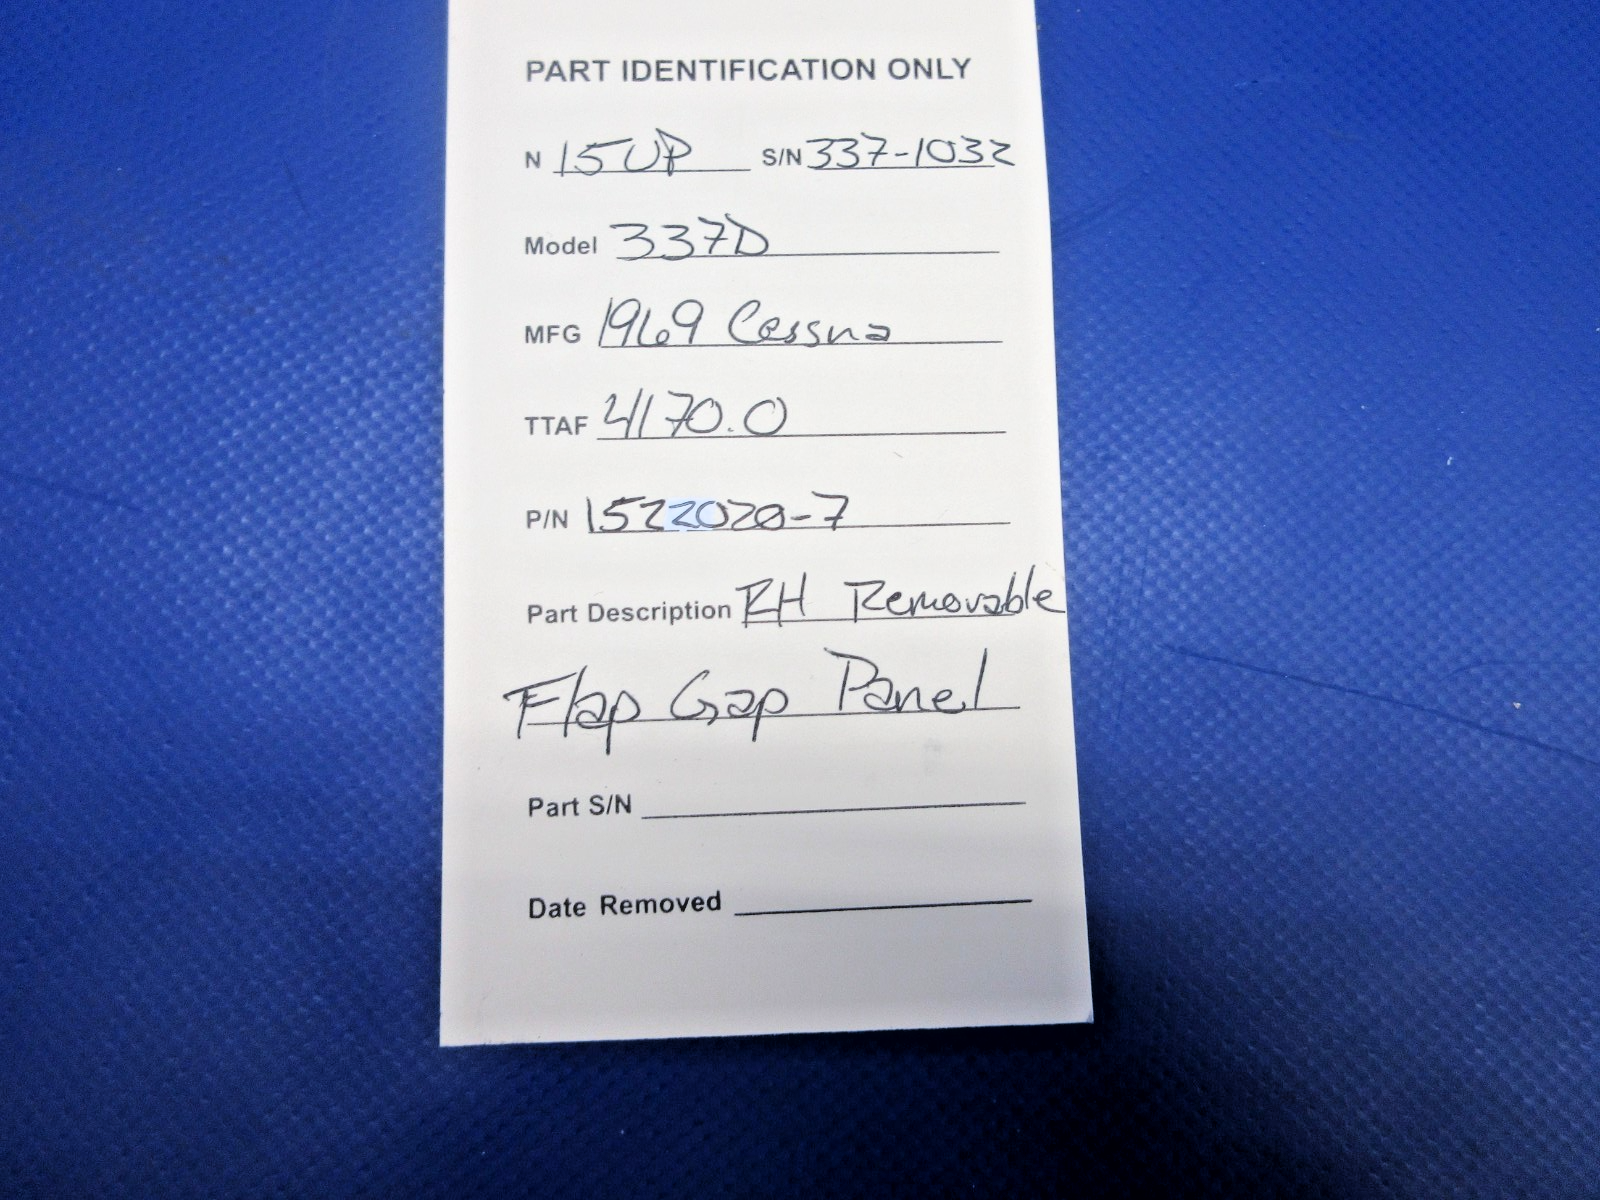 PART IDENTIFICATION ONLY
N 15UP S/N 337-1032
Model 337D
MFG 1969 Cessna
TTAF 4170.0
P/N 1522020-7
Part Description RH Removable
Flap Gap Panel
Part S/N
Date Removed